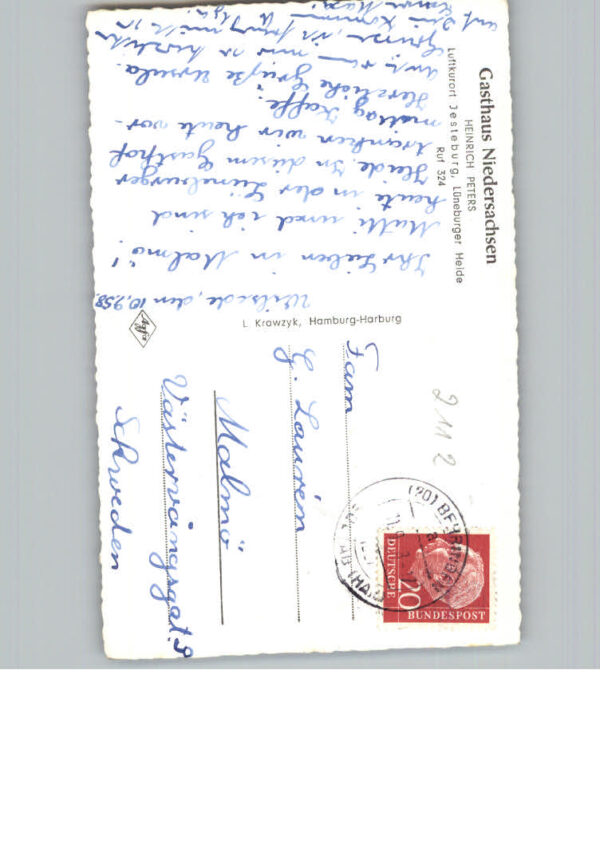 Gasthaus Niedersachsen
HEINRICH PETERS
Luftkurort Jesteburg, Lüneburger Heide
Ruf 324
Wilsede, den 10.9.58.
Ihr Lieben in Malmö!
Mutti und ich sind
heute in der Lüneburger
Heide. In diesem Gasthof
tranken wir heute vor-
mittag Kaffe.
Herzliche Grüße Ursula.
L. Krawzyk, Hamburg-Harburg
Agfa
2112
Fam
G. Laurén
Malmö
Västervångsgat. 9
Schweden
(20) BEHRINGEN
DEUTSCHE
BUNDESPOST
20